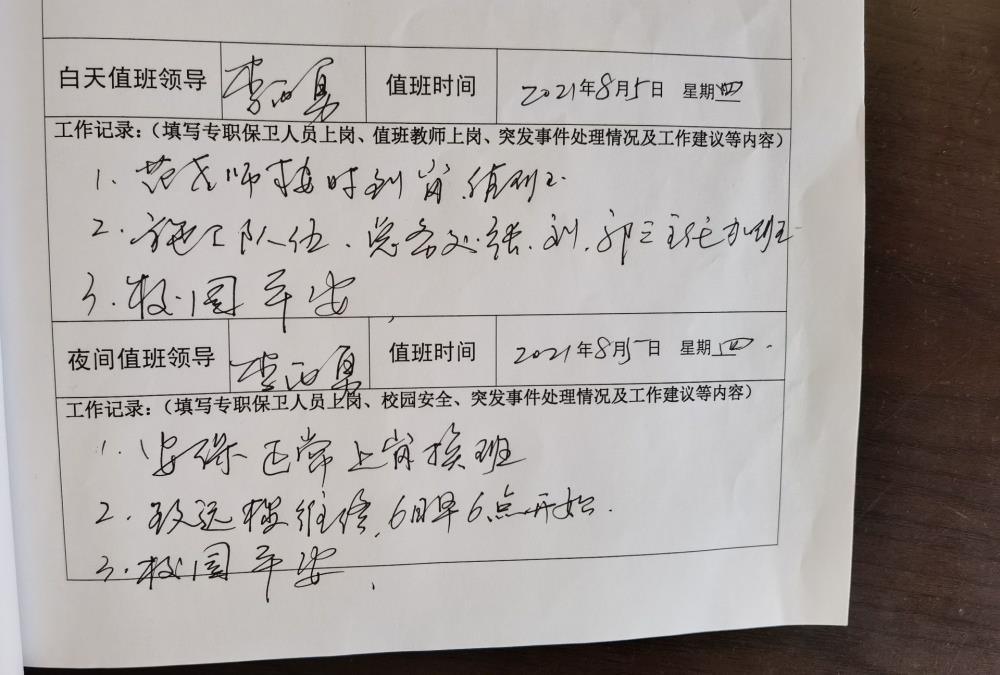 白天值班领导 李西勇 值班时间 2021年8月5日 星期四
工作记录：（填写专职保卫人员上岗、值班教师上岗、突发事件处理情况及工作建议等内容）
1. 范老师按时到岗值班.
2. 施工队伍、总务处张、刘、郭三主任加班
3. 校园平安
夜间值班领导 李西勇 值班时间 2021年8月5日 星期四.
工作记录：（填写专职保卫人员上岗、校园安全、突发事件处理情况及工作建议等内容）
1. 安保正常上岗换班
2. 致远楼维修，6日早6点开始.
3. 校园平安.